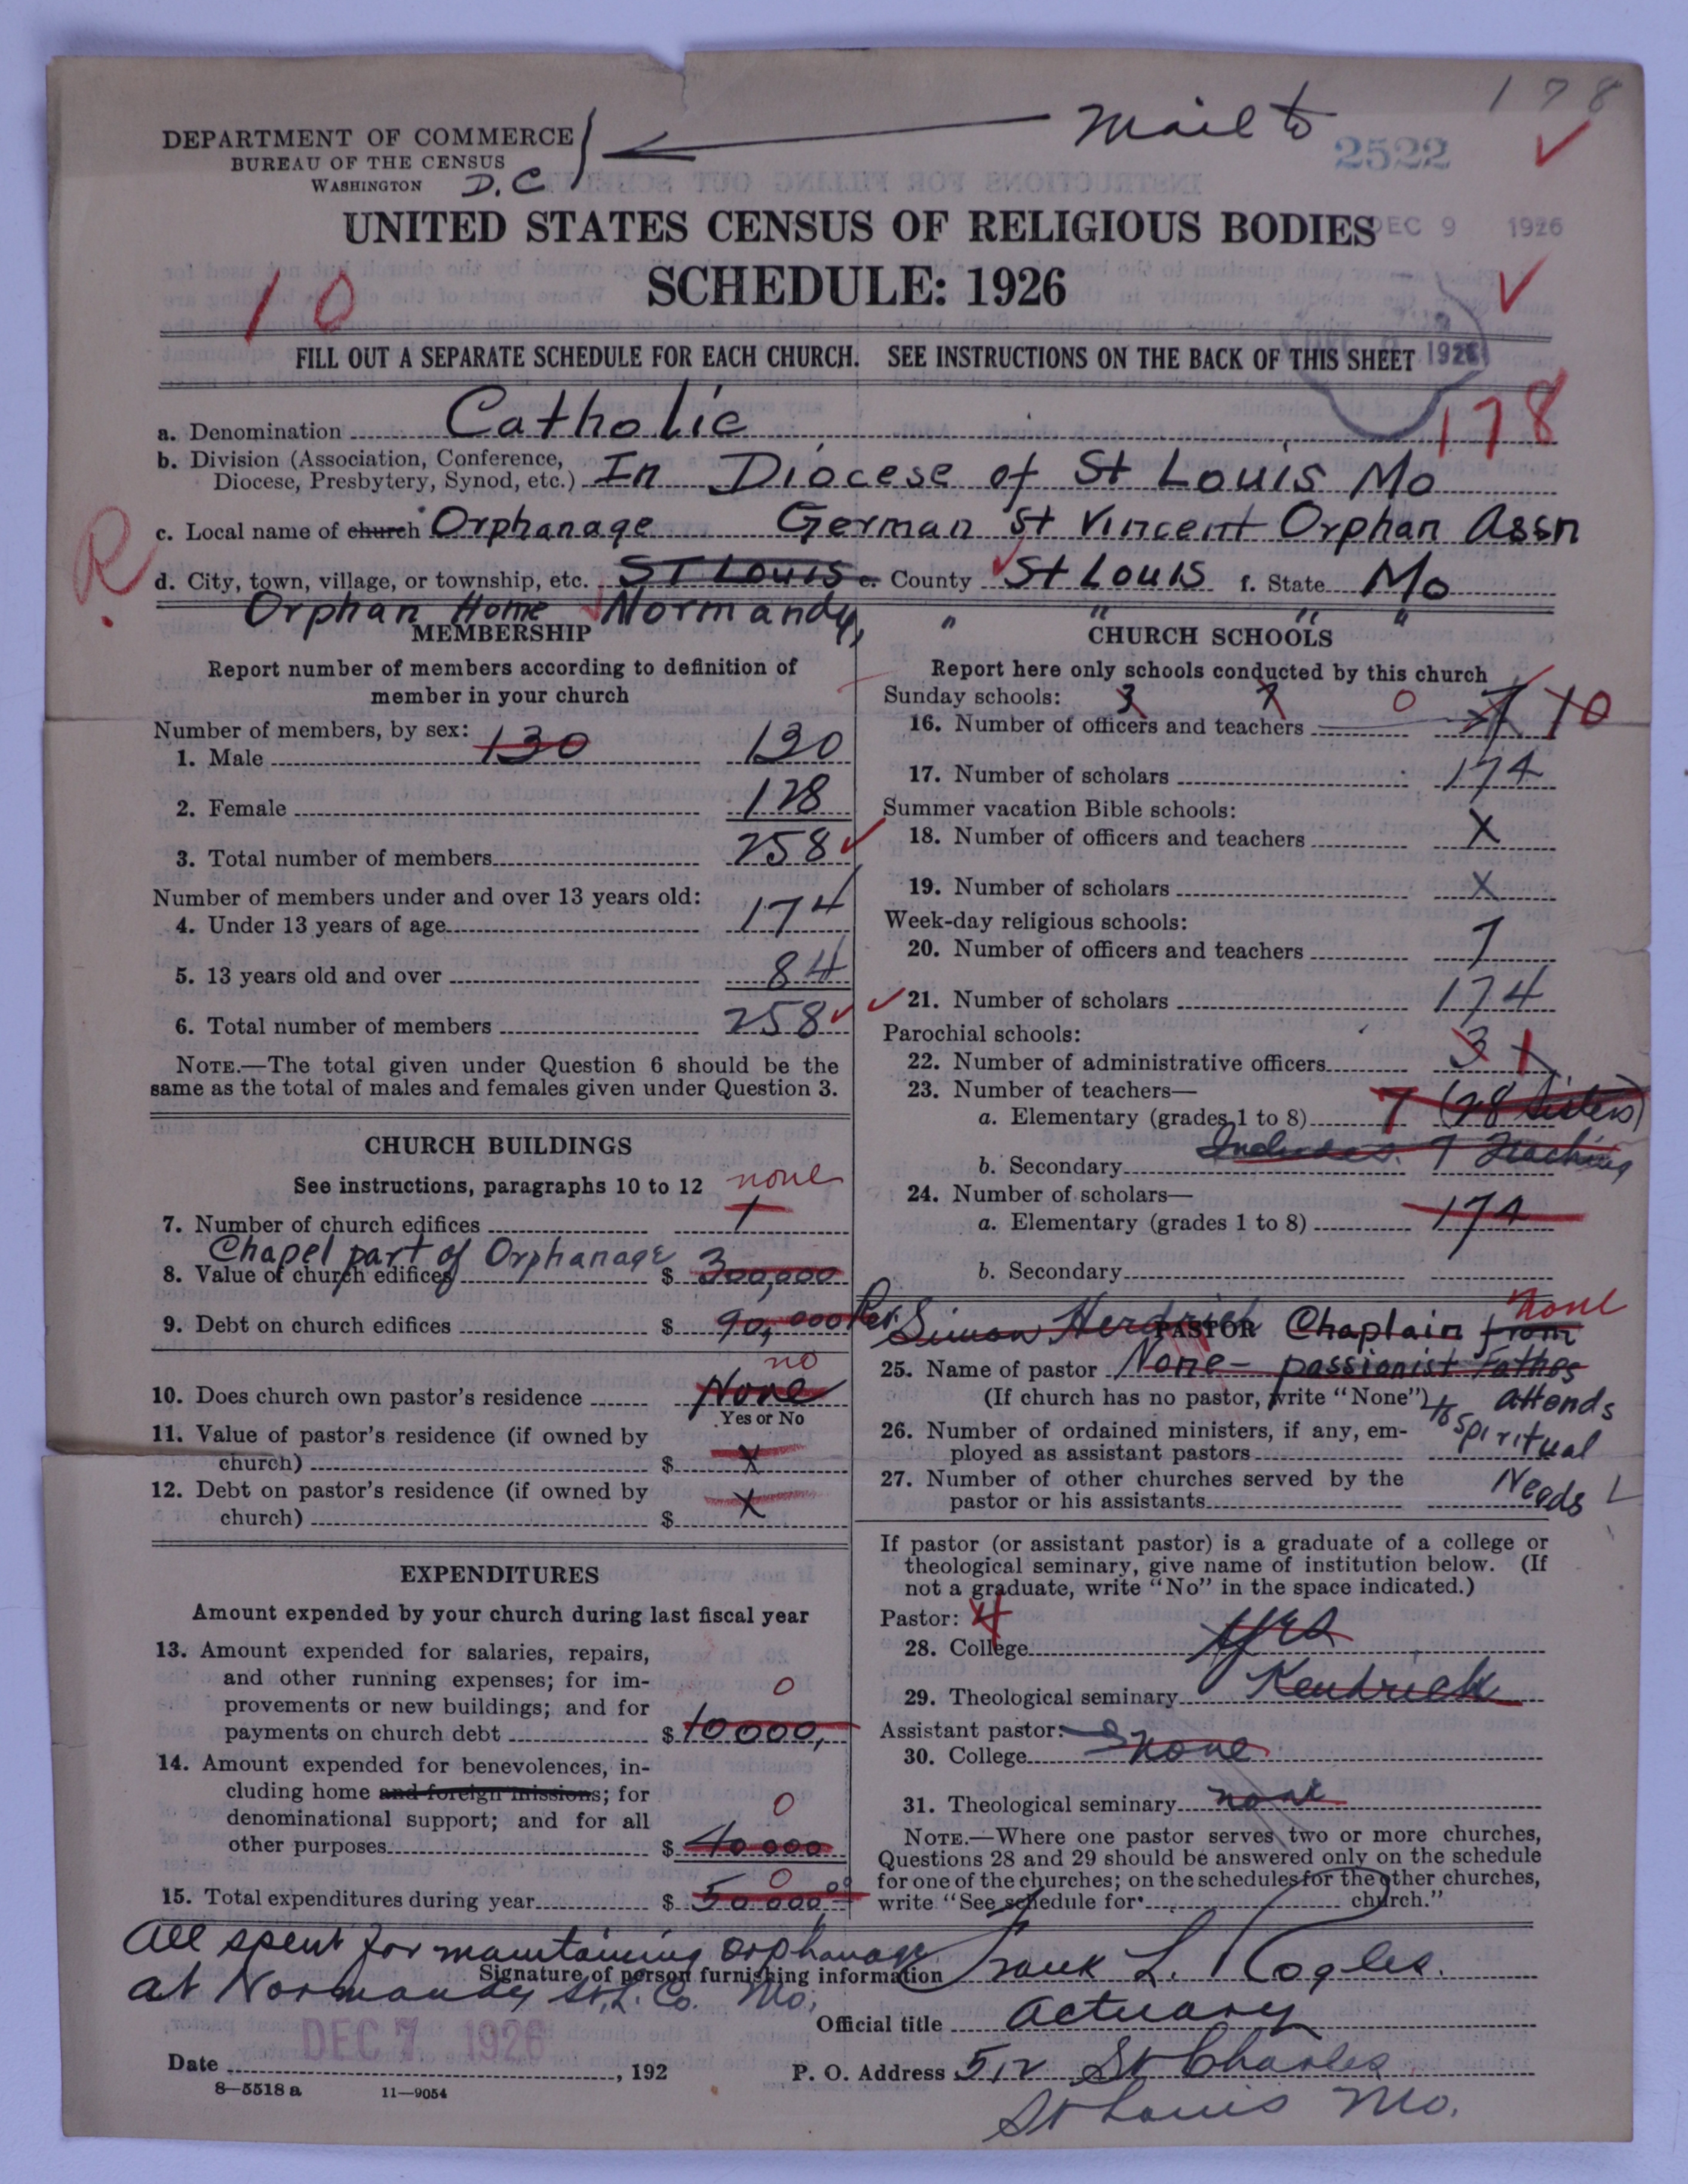 178
Mail to
DEPARTMENT OF COMMERCE
BUREAU OF THE CENSUS
WASHINGTON D.C
2522
UNITED STATES CENSUS OF RELIGIOUS BODIES
DEC 9 1926
SCHEDULE: 1926
10
FILL OUT A SEPARATE SCHEDULE FOR EACH CHURCH. SEE INSTRUCTIONS ON THE BACK OF THIS SHEET
1926
178
a. Denomination Catholic
b. Division (Association, Conference,
Diocese, Presbytery, Synod, etc.) In Diocese of St Louis Mo
c. Local name of church Orphanage German St Vincent Orphan Assn
R
d. City, town, village, or township, etc. St Louis e. County St Louis f. State Mo
Orphan Home Normandy, " " " "
MEMBERSHIP
Report number of members according to definition of
member in your church
Number of members, by sex:
1. Male 130 130
2. Female 128
3. Total number of members 258
Number of members under and over 13 years old:
4. Under 13 years of age 174
5. 13 years old and over 84
6. Total number of members 258
NOTE.—The total given under Question 6 should be the
same as the total of males and females given under Question 3.
CHURCH BUILDINGS
See instructions, paragraphs 10 to 12
none
7. Number of church edifices 1
Chapel part of Orphanage
8. Value of church edifices $ 300,000
9. Debt on church edifices $ 90,000
no
10. Does church own pastor's residence None
Yes or No
11. Value of pastor's residence (if owned by
church) $ X
12. Debt on pastor's residence (if owned by
church) $ X
EXPENDITURES
Amount expended by your church during last fiscal year
13. Amount expended for salaries, repairs,
and other running expenses; for im-
provements or new buildings; and for
payments on church debt $ 10000,
0
14. Amount expended for benevolences, in-
cluding home and foreign missions; for
denominational support; and for all
other purposes $ 40000
0
15. Total expenditures during year $ 50000.00
0
CHURCH SCHOOLS
Report here only schools conducted by this church
Sunday schools: 3 7 0
16. Number of officers and teachers 7 10
17. Number of scholars 174
Summer vacation Bible schools:
18. Number of officers and teachers X
19. Number of scholars X
Week-day religious schools:
20. Number of officers and teachers 7
21. Number of scholars 174
Parochial schools:
22. Number of administrative officers 3 1
23. Number of teachers—
a. Elementary (grades 1 to 8) 7 (28 Sisters)
b. Secondary Includes 7 Teaching
24. Number of scholars—
a. Elementary (grades 1 to 8) 174
b. Secondary
none
Rev Simon Herdrich PASTOR Chaplain from
25. Name of pastor None - passionist Fathes
(If church has no pastor, write "None") attends
to spiritual
26. Number of ordained ministers, if any, em-
ployed as assistant pastors
27. Number of other churches served by the Needs
pastor or his assistants
If pastor (or assistant pastor) is a graduate of a college or
theological seminary, give name of institution below. (If
not a graduate, write "No" in the space indicated.)
Pastor: 4
28. College Yes
29. Theological seminary Kendrick
Assistant pastor:
30. College none
31. Theological seminary none
NOTE.—Where one pastor serves two or more churches,
Questions 28 and 29 should be answered only on the schedule
for one of the churches; on the schedules for the other churches,
write "See schedule for church."
All spent for maintaining orphanage
at Normandy St. L. Co. Mo.
Signature of person furnishing information Frank L. Kogler.
Official title Actuary
DEC 7 1926
Date , 192
P. O. Address 512 St Charles
St Louis Mo.
8—5518 a 11—9054